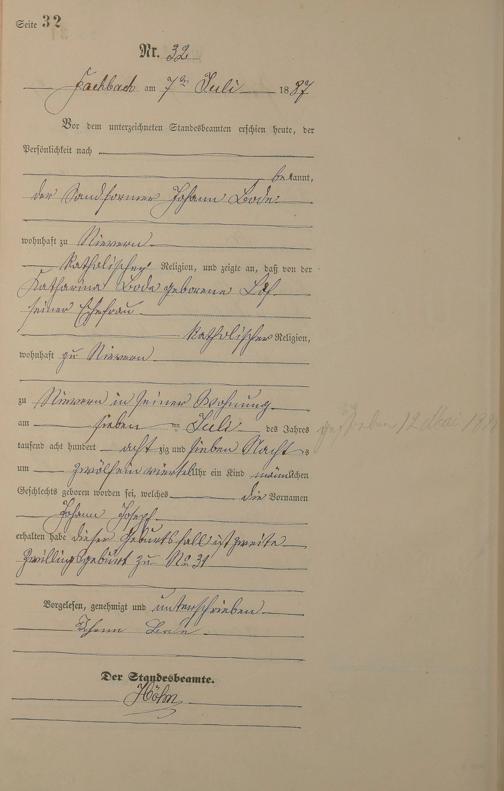 Seite 32
Nr. 32
Fachbach am 7ten Juli 1887
Vor dem unterzeichneten Standesbeamten erschien heute, der
Persönlichkeit nach
bekannt,
der Sandformer Johann Bode
wohnhaft zu Nievern
katholischer Religion, und zeigte an, daß von der
Katharina Bode geborene Löf
seiner Ehefrau
katholischer Religion,
wohnhaft zu Nievern
zu Nievern in seiner Wohnung
am sieben ten Juli des Jahres
tausend acht hundert achtzig und sieben Nachts
um zwölfeinviertel Uhr ein Kind männlichen
Geschlechts geboren worden sei, welches die Vornamen
Johann Joseph
erhalten habe dieser Geburtsfall ist zweite
Zwillingsgeburt zu No 31
Vorgelesen, genehmigt und unterschrieben
Johann Bode
Der Standesbeamte.
Höhn
gestorben 12 Mai